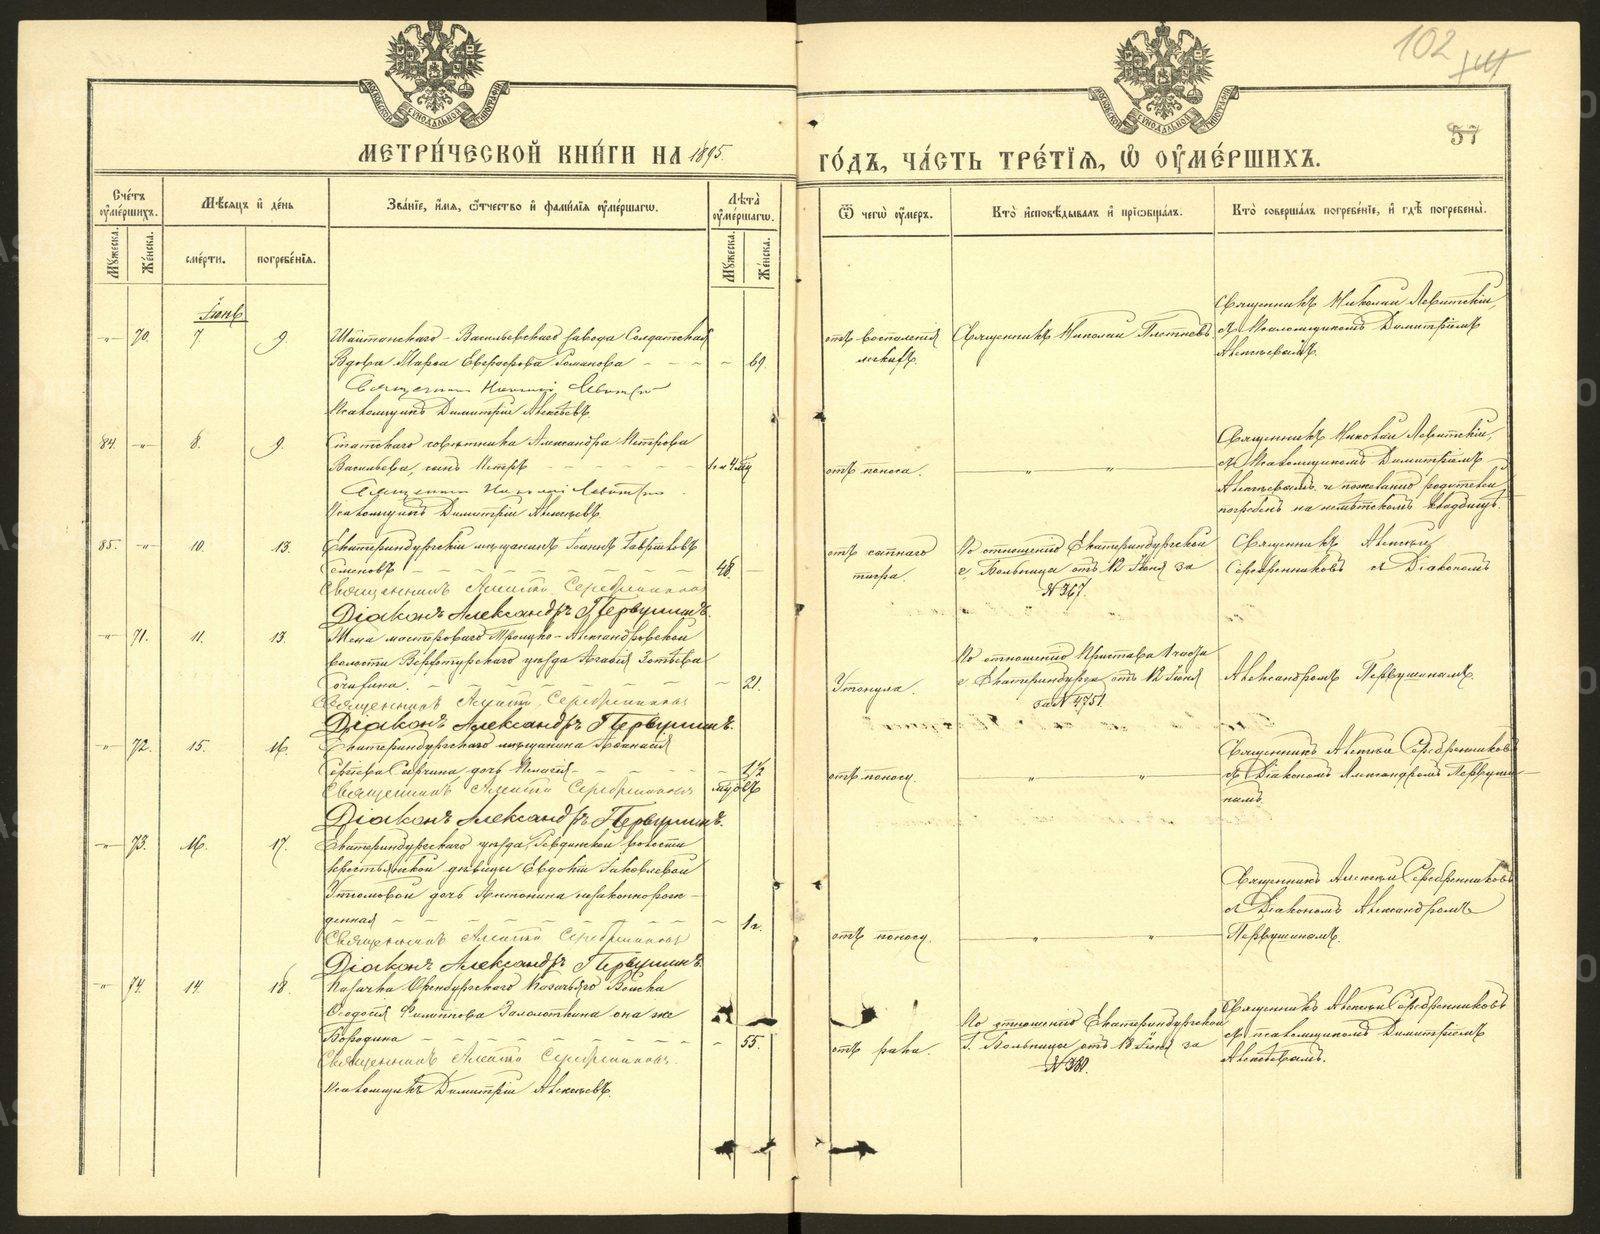 102
57
МОСКОВСКОЙ СѴНОДАЛЬНОЙ ТИПОГРАФІИ
МОСКОВСКОЙ СѴНОДАЛЬНОЙ ТИПОГРАФІИ
МЕТРИ́ЧЕСКОЙ КНИ́ГИ НА 1895
ГО́ДЪ, ЧА́СТЬ ТРЕ́ТІѦ, Ѡ҆ ОУ҆МЕ́РШИХЪ.
Сче́тъ оу҆ме́ршихъ.
Мѣ́сяцъ и҆ де́нь
Зва́нїе, и҆́мѧ, ѻ҆́тчество и҆ фамилїѧ оу҆ме́ршагѡ.
Лѣ́та оу҆ме́ршагѡ.
Ѿ чегѡ̀ оу҆́меръ.
Кто̀ и҆сповѣ́дывалъ и҆ прїѡбща́лъ.
Кто̀ соверша́лъ погребе́нїе, и҆ гдѣ̀ погребены̀.
Мꙋ́жеска.
Же́нска.
сме́рти.
погребе́нїѧ.
Мꙋ́жеска.
Же́нска.
Іюнь
-"- 70. 7. 9
Шайтанскаго-Васильевскаго завода Солдатская
Вдова Марѳа Евграфова Романова - - - - 69.
Священникъ Николай Левитскій
Псаломщикъ Димитрій Алексѣевъ.
отъ воспаленія
легкихъ.
Священникъ Николай Плетневъ.
Священникъ Николай Левитскій,
съ Псаломщикомъ Димитріемъ
Алексѣевымъ.
84 -"- 8. 9.
Статскаго совѣтника Александра Петрова
Васильева, сынъ Петръ - - - - 1 г 4 мѣ
Священникъ Николай Левитскій
Псаломщикъ Димитрій Алексѣевъ.
отъ поноса. " "
Священникъ Николай Левитскій,
съ Псаломщикомъ Димитріемъ
Алексѣевымъ. и по желанію родителей
погребенъ на нѣмѣтскомъ кладбищѣ.
85. -"- 10. 13.
Екатеринбургскій мѣщанинъ Іоаннъ Гавріиловъ
Семеновъ - - - - 48. -
Священникъ Алексѣй Серебренниковъ
Діаконъ Александръ Первушинъ.
отъ сапнаго
тифа.
По отношенію Екатеринбургской
г. Больницы отъ 12 Іюня за
№ 367.
Священникъ Алексѣй
Серебренниковъ съ Діакономъ
-"- 71. 11. 13.
Жена мастероваго Троицко-Александровской
волости Верхотурскаго уѣзда Агафія Зотѣева
- - - - 21.
Священникъ Алексѣй Серебренниковъ
Діаконъ Александръ Первушинъ.
Утонула.
По отношенію Пристава 1 части
г. Екатеринбурга отъ 12 Іюня
за № 4751
Александромъ Первушинымъ.
-"- 72. 15. 16.
Екатеринбургскаго мѣщанина Аѳанасія
Сергѣева дочь Пелагія - - - - 1½
Священникъ Алексѣй Серебренниковъ
Діаконъ Александръ Первушинъ.
отъ поносу. " "
Священникъ Алексѣй Серебренниковъ
съ Діакономъ Александромъ Первуши-
нымъ.
-"- 73. 16. 17.
Екатеринбургскаго уѣзда, Ревдинской волости
крестьянской дѣвицы Евдокіи Іаковлевой
дочь Антонина незаконнорож-
денная - - - - 1 г.
Священникъ Алексѣй Серебренниковъ
Діаконъ Александръ Первушинъ.
отъ поносу. " "
Священникъ Алексѣй Серебренниковъ
съ Діакономъ Александромъ
Первушинымъ.
-"- 74. 14. 18.
Казачка Оренбургскаго Казачьяго Войска
Ѳеодосія Филиппова Заплаткина она же
Бородина - - - - 55.
Священникъ Алексѣй Серебренниковъ
Псаломщикъ Димитрій Алексѣевъ.
отъ рака.
По отношенію Екатеринбургской
Г. Больницы отъ 18 Іюня за
№ 380.
Священникъ Алексѣй Серебренниковъ
съ псаломщикомъ Димитріемъ
Алексѣевымъ.